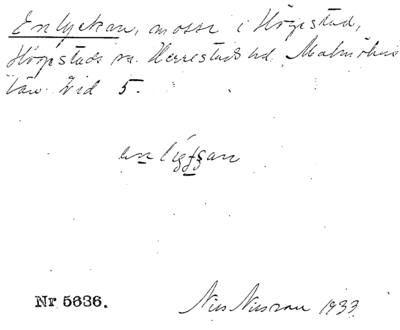 Enlyckan, mosse i Högestad,
Högestads sn. Herrestads hd. Malmöhus
län. Bid 5.
en ligfgan
Nr 5636.
Nils Nilsson 1933